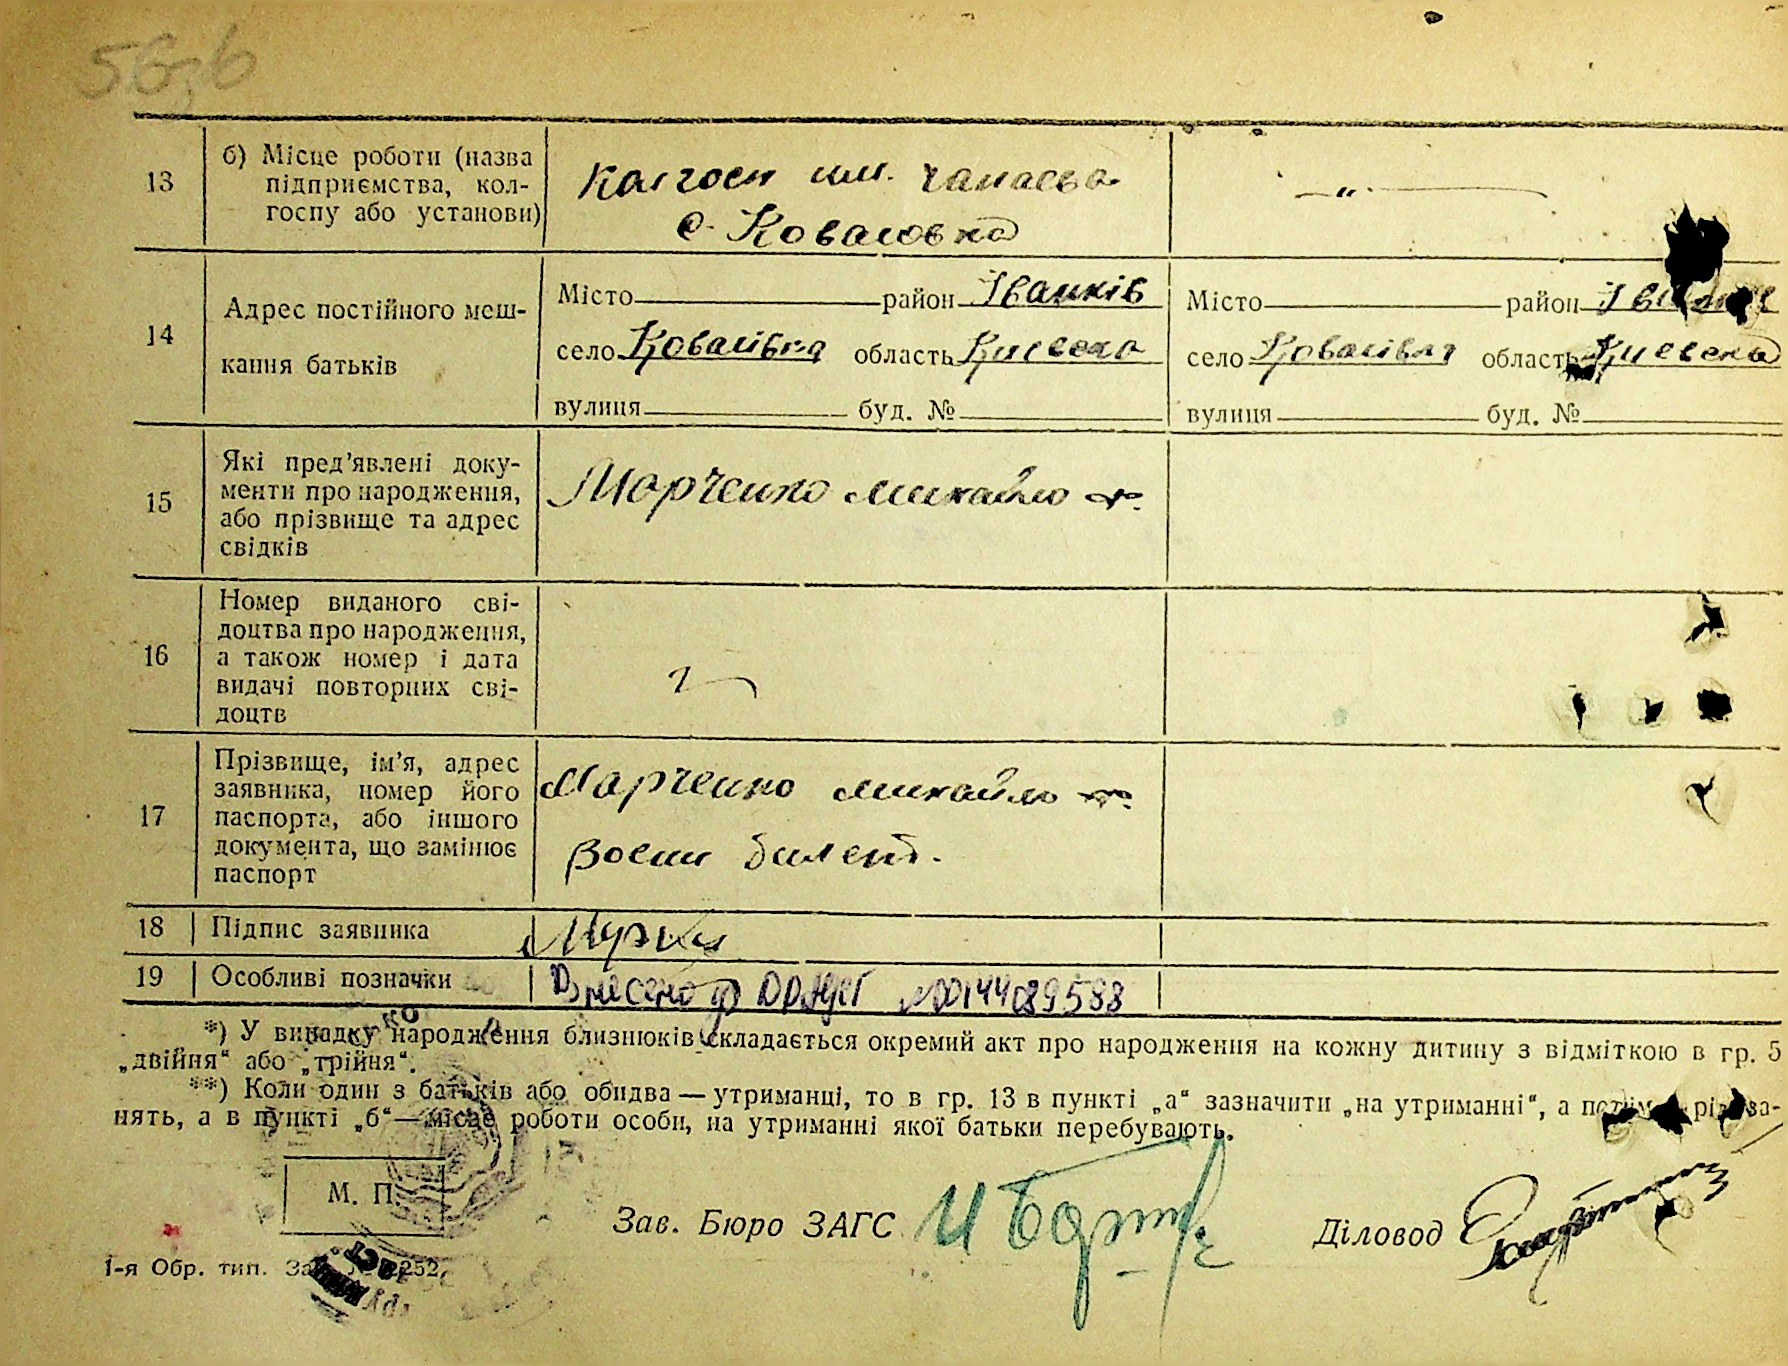 56зб
13
б) Місце роботи (назва
підприємства, кол-
госпу або установи)
Колгосп им. Чапаєва
с. Коваловка
— „ —
14
Адрес постійного меш-
кання батьків
Місто район Іванків
село Ковалівка область Києвска
вулиця буд. №
Місто район
село Ковалівка область Києвска
вулиця буд. №
15
Які пред’явлені доку-
менти про народження,
або прізвище та адрес
свідків
Марченко михайло
16
Номер виданого сві-
доцтва про народження,
а також номер і дата
видачі повторних сві-
доцтв
17
Прізвище, ім’я, адрес
заявника, номер його
паспорта, або іншого
документа, що замінює
паспорт
Марченко михайло
Воени билет.
18 Підпис заявника
19 Особливі позначки
Внесено до ДРАЦСГ №00144089588
*) У випадку народження близнюків складається окремий акт про народження на кожну дитину з відміткою в гр. 5
„двійня“ або „трійня“.
**) Коли один з батьків або обидва — утриманці, то в гр. 13 в пункті „а“ зазначити „на утриманні“, а
нять, а в пункті „б“ — місце роботи особи, на утриманні якої батьки перебувають.
М. П.
Зав. Бюро ЗАГС
Діловод
1-я Обр. тип.